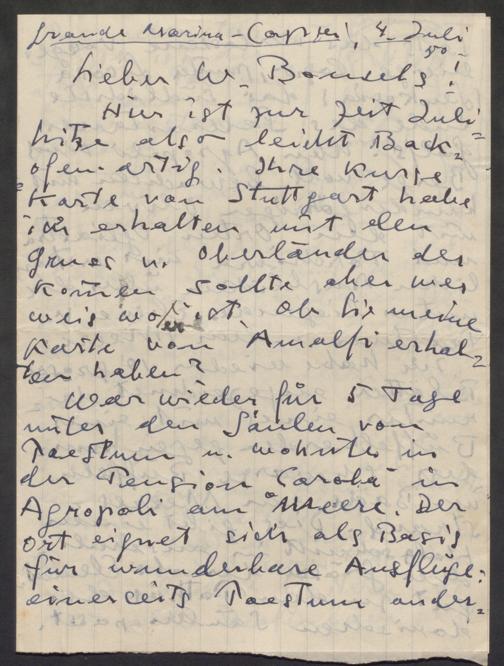 Grande Marina - Capri, 4. Juli
50
Lieber W. Bonsels!
Hier ist zur Zeit Juli-
hitze also leicht Back-
ofen-artig. Ihre kurze
Karte von Stuttgart habe
ich erhalten mit den
Grues u. Oberländer der
komen sollte aber wer
weis wo er ist. Ob Sie meine
Karte von Amalfi erhal-
ten haben?
War wieder für 5 Tage
unter den Säulen von
Paestum u. wohnte in
der Pension Carola in
Agropoli am Meere. Der
Ort eignet sich als Basis
für wunderbare Ausflüge:
einerseits Paestum ander-